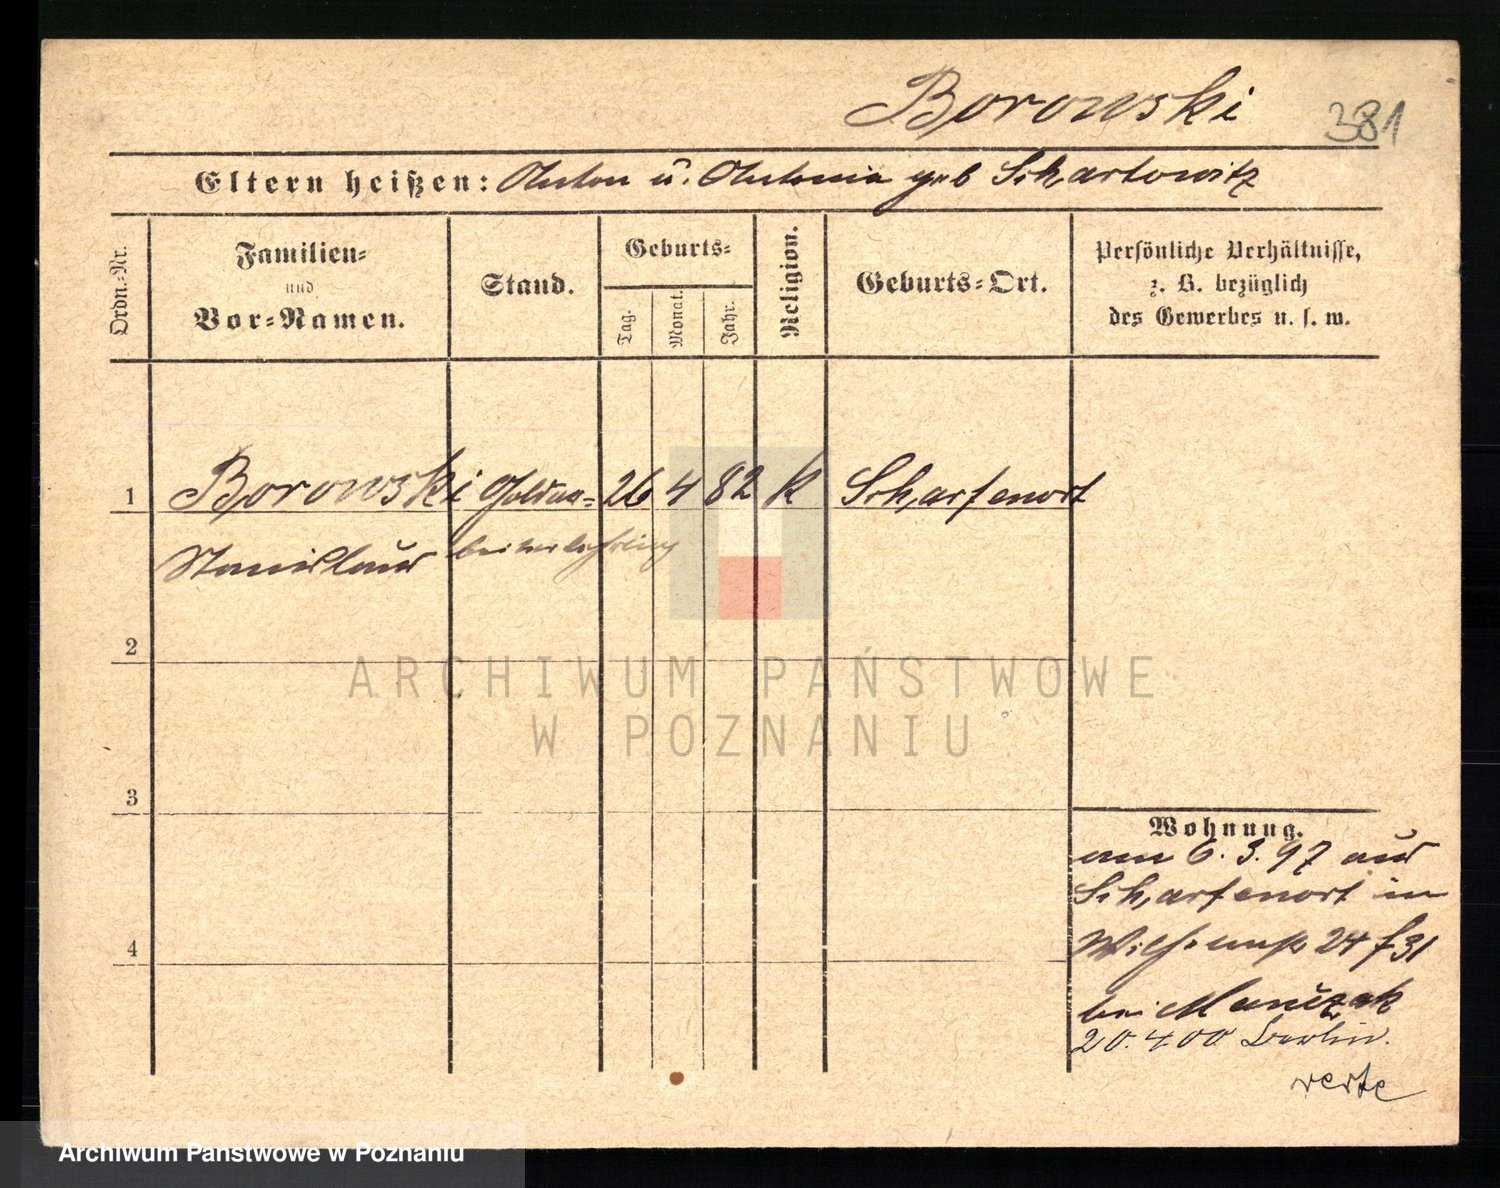 Borowski
381
Eltern heißen: Anton u. Antonia geb Schartowitz
Ordn.-Nr.
Familien-
und
Vor-Namen.
Stand.
Geburts-
Tag.
Monat.
Jahr.
Religion.
Geburts-Ort.
Persönliche Verhältnisse,
z. B. bezüglich
des Gewerbes u. s. w.
1 Borowski 26 4 82 K Scharfenort
Stanislaus
2
3
4
ARCHIWUM PAŃSTWOWE
W POZNANIU
Wohnung.
am 6.3.97 aus
Scharfenort in
24
bei
20.4.00 Berlin.
verte
Archiwum Państwowe w Poznaniu